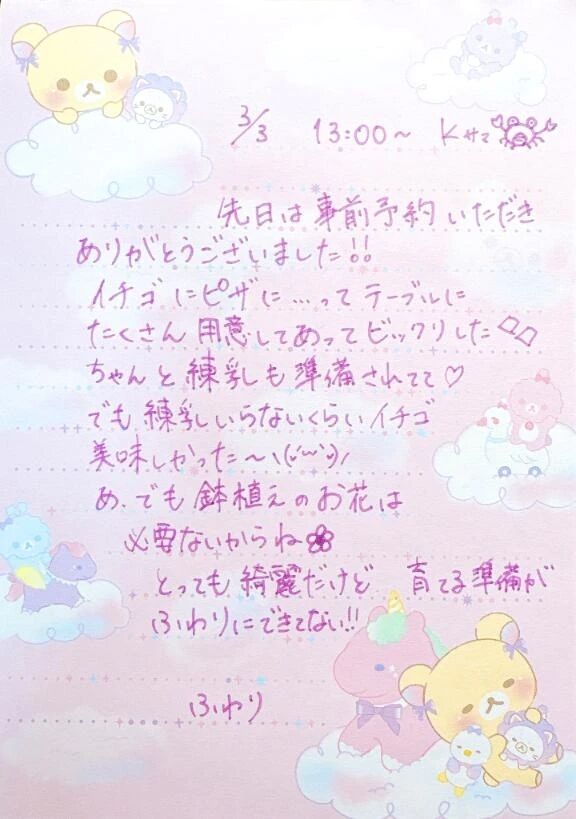 3/3 13:00~ Kサマ
先日は事前予約いただき
ありがとうございました!!
イチゴにピザに...ってテーブルに
たくさん用意してあってビックリした
ちゃんと練乳も準備されてて♡
でも練乳いらないくらいイチゴ
美味しかった~ヽ(*´꒳`*)ノ
あ、でも鉢植えのお花は
必要ないからね
とっても綺麗だけど 育てる準備が
ふわりにできてない!!
ふわり